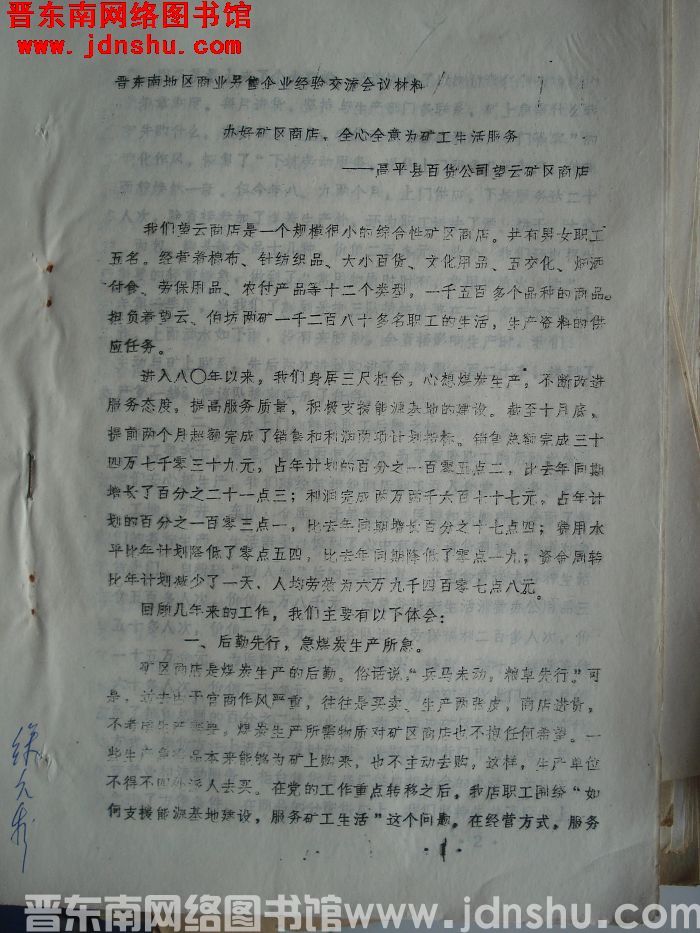 晋东南网络图书馆
www.jdnshu.com
晋东南地区商业另售企业经验交流会议材料
办好矿区商店，全心全意为矿工生活服务
——高平县百货公司望云矿区商店
我们望云商店是一个规模很小的综合性矿区商店。共有男女职工
五名。经营着棉布、针纺织品、大小百货、文化用品、五交化、烟酒
付食、劳保用品、农付产品等十二个类型，一千五百多个品种的商品。
担负着望云、伯坊两矿一千二百八十多名职工的生活，生产资料的供
应任务。
进入八〇年以来，我们身居三尺柜台，心想煤炭生产，不断改进
服务态度，提高服务质量，积极支援能源基地的建设。截至十月底，
提前两个月超额完成了销售和利润两项计划指标。销售总额完成三十
四万七千零三十九元，占年计划的百分之一百零五点二，比去年同期
增长了百分之二十一点三；利润完成两万两千六百十十七元，占年计
划的百分之一百零三点一，比去年同期增长百分之十七点四；费用水
平比年计划降低了零点五四，比去年同期降低了零点一九；资金周转
比年计划减少了一天、人均劳效为六万九千四百零七点八元。
回顾几年来的工作，我们主要有以下体会：
一、后勤先行，急煤炭生产所急。
矿区商店是煤炭生产的后勤。俗话说，“兵马未动，粮草先行。”可
是，过去由于官商作风严重，往往是买卖、生产两张皮，商店进货，
不考虑生产需要，煤炭生产所需物质对矿区商店也不抱任何希望。一
些生产急需品本来能够为矿上购来，也不主动去购，这样，生产单位
不得不四外派人去买。在党的工作重点转移之后，我店职工围绕“如
何支援能源基地建设，服务矿工生活”这个问题，在经营方式，服务
1
晋东南网络图书馆 www.jdnshu.com